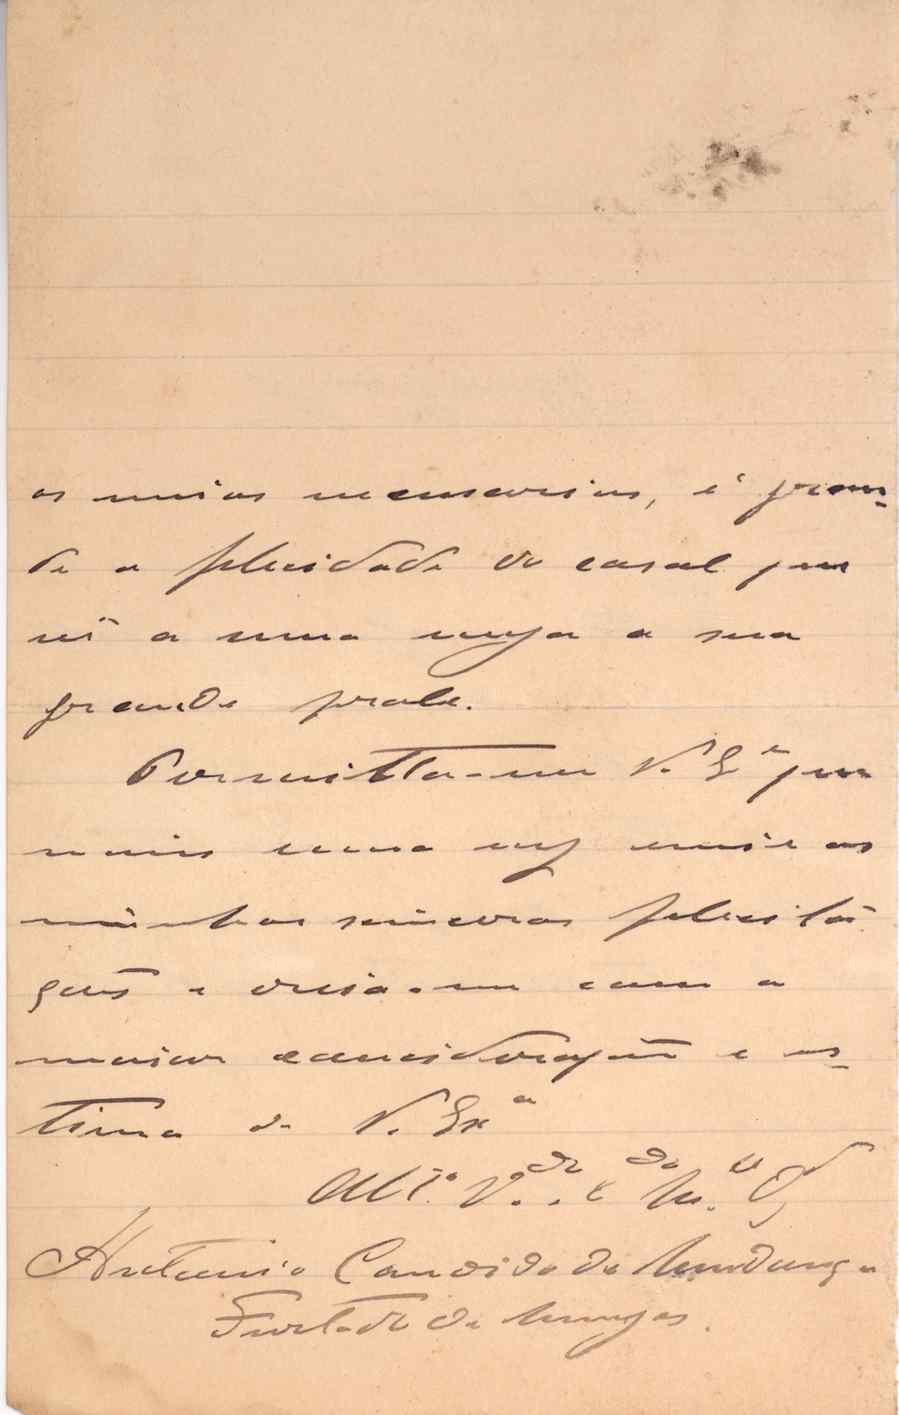 os meios necessarios, é gran-
de a felicidade do casal que
vê a uma meza a sua
grande prole.
Permitta-me V. Ex.ª que
mais uma vez envie as
minhas sinceras felicita-
ções e creia-me com a
maior consideração e es-
tima de V. Exª
Att.º V.dor e
Antonio Candido de Mendonça
Furtado de Menezes.